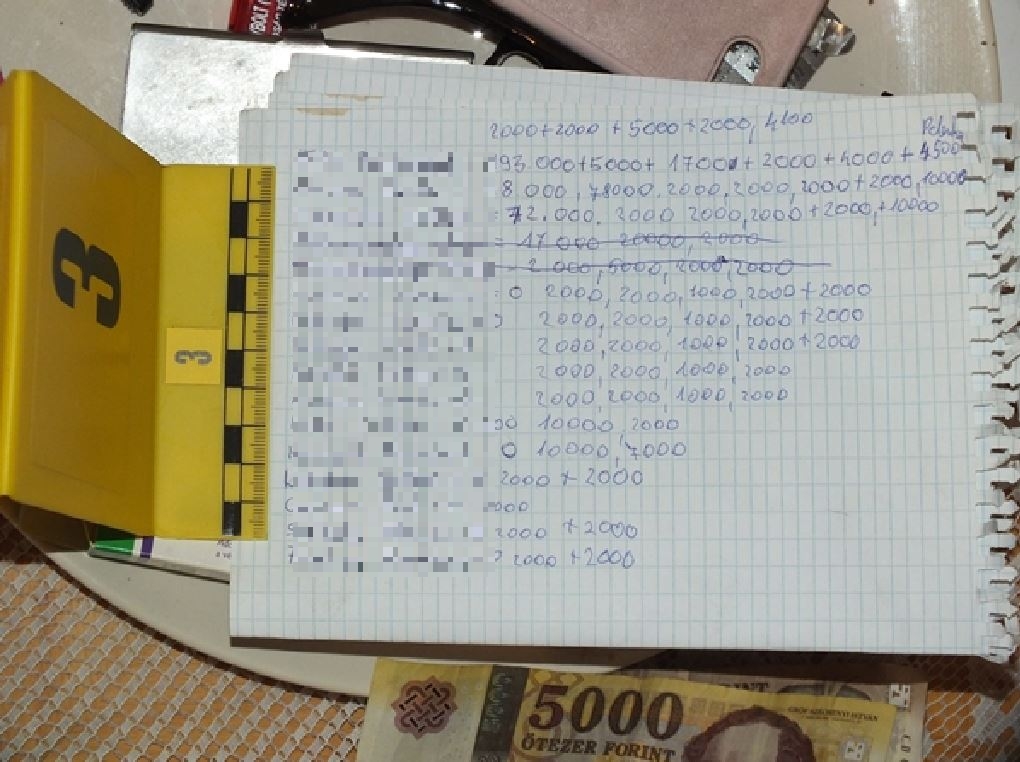 2000+2000 +5000+2000, 4100
93.000+5000+ 17000+ 2000 +4000 + 4500
8.000, 78000. 2000, 2000, 2000 + 2000, 10000
= 72.000. 2000 2000, 2000 + 2000, +10000
= 17 000 20000, 2000
- 2 000, 5000, 2000, 2000
: 0 2000, 2000, 1000, 2000 + 2000
2000, 2000, 1000, 2000 + 2000
2000, 2000, 1000, 2000 + 2000
2000, 2000, 1000, 2000
2000, 2000, 1000, 2000
10000, 2000
0 10000, 7000
2000 + 2000
000
2000 + 2000
2000 + 2000
3
3
5000
ÖTEZER FORINT
GRÓF SZÉCHENYI ISTVÁN